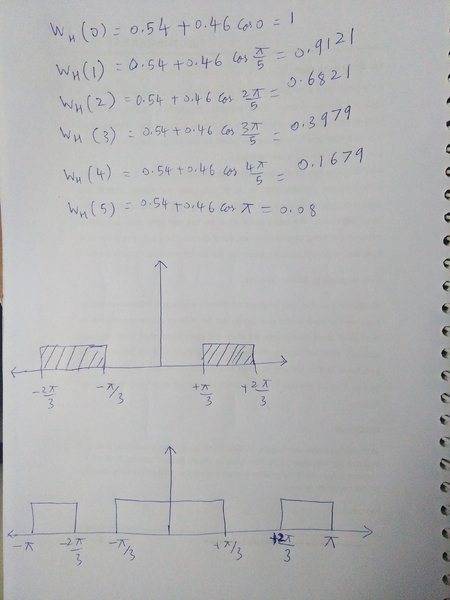 W_H(0) = 0.54 + 0.46 cos 0 = 1
W_H(1) = 0.54 + 0.46 cos π/5 = 0.9121
W_H(2) = 0.54 + 0.46 cos 2π/5 = 0.6821
W_H(3) = 0.54 + 0.46 cos 3π/5 = 0.3979
W_H(4) = 0.54 + 0.46 cos 4π/5 = 0.1679
W_H(5) = 0.54 + 0.46 cos π = 0.08
-2π/3 -π/3 +π/3 +2π/3
-π -2π/3 -π/3 +π/3 +2π/3 π